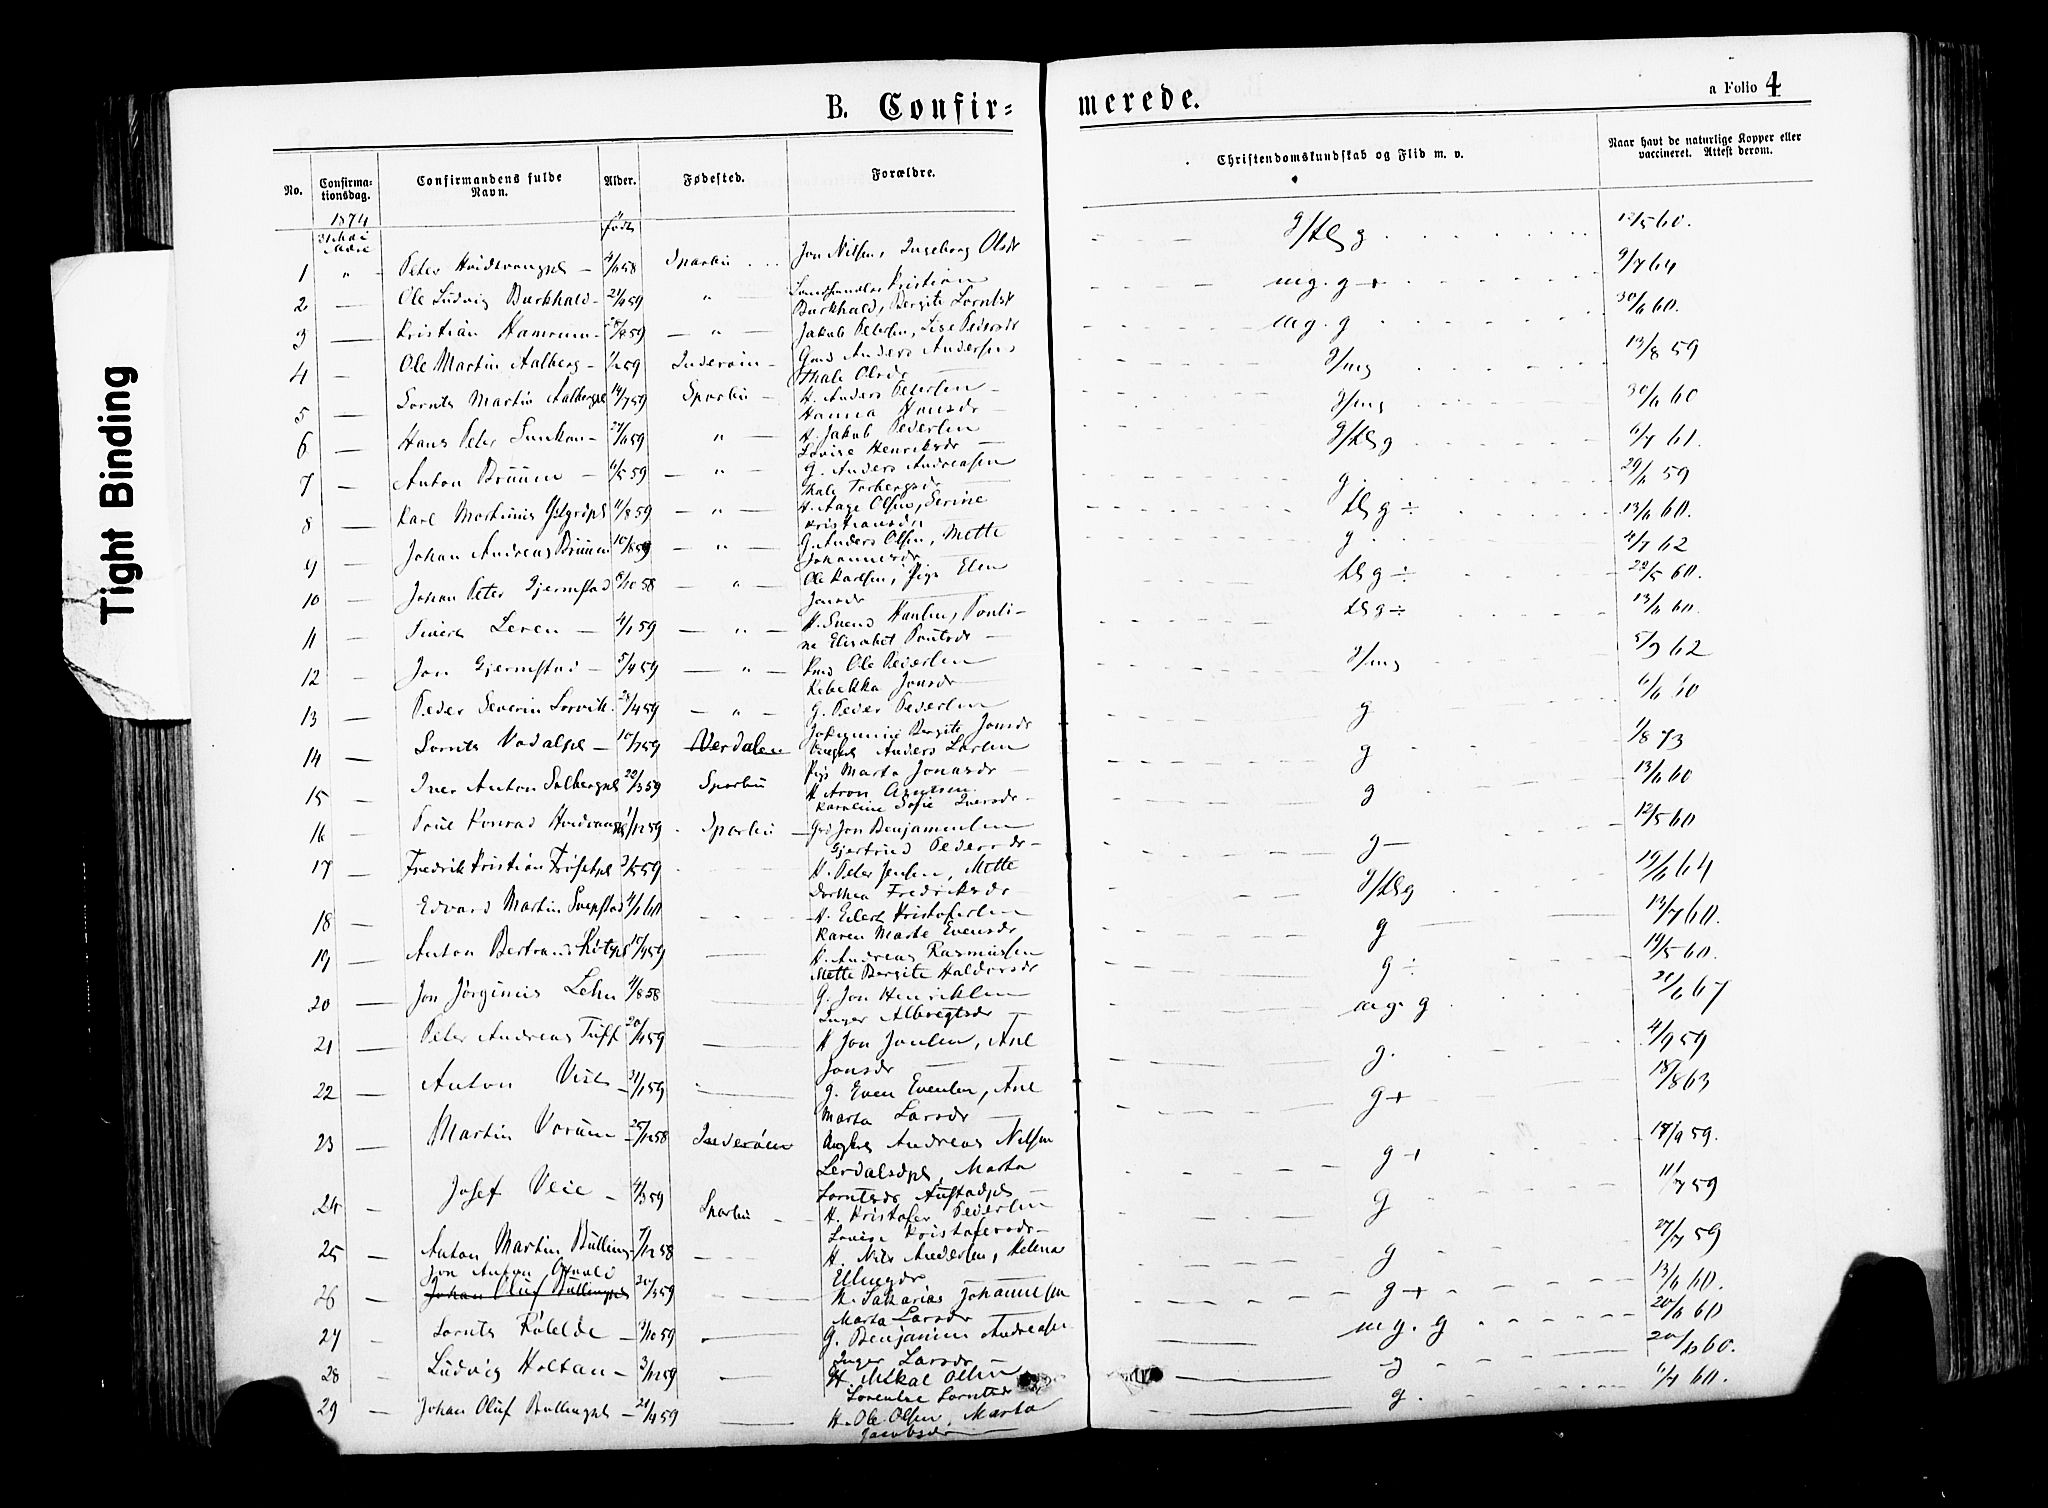 Tight Binding
B. Confir=
merede.
a Folio 4
No.
Confirma-
tionsdag.
Confirmandens fulde
Navn.
Alder.
Fødested.
Forældre.
Christendomskundskab og Flid m. v.
Naar havt de naturlige Kopper eller
vaccineret. Attest derom.
1874
født
31 Mai
1 " Peter Hvidsvangpl Sparbu Jon Nilsen, Ingeborg Olsdr g/tlg g 12/5 60.
2 — Ole Ludvig Burkhald " Landhandler Kristian
Burkhald, Bergite Lorntsdr mg. g + 9/7 64
3 — Kristian Hamrum " Jakob Petersen, Lise Pedersdr mg. g 30/6 60.
4 — Ole Martin Aalberg Inderøen Gmd Anders Andersen
Thale Olsdr g/mg 13/8 59
5 — Lornts Martin Aalbergpl 14/7 59 Sparbu H. Anders Petersen
Hanna Hansdr g/mg 30/6 60
6 — Hans Peter " H. Jakob Pedersen
Lovise Henriksdr g/tlg g 6/7 61.
7 — Anton Brüüm 6/5 59 " G. Anders Andreasen
Thale Torbergsdr g. 29/6 59
8 — Karl Martinus 11/8 59 " H. Aage Olsen, Serine
Kristiansdr tlg g ÷ 13/6 60.
9 — Johan Andreas Brüüm " G. Anders Olsen, Mette
Johannesdr g 4/7 62
10 — Johan Peter Gjermstad 6/10 58 " Ole Karlsen, Pige Elen
Jonsdr tlg g ÷ 22/5 60.
11 — Sivert Leren 4/1 59 " H. Svend Paulsen, Pauli-
ne Elisabet Paulsdr tlg g ÷ 13/6 60.
12 — Jon Gjermstad 5/4 59 " Ole Pedersen
Rebekka Jonsdr g/mg 5/9 62
13 — Peder Severin Lorvik 23/4 59 " G. Peder Pedersen
Johannine Bergite Jonsdr g 6/6 60
14 — Lornts Vodalspl 10/7 59 Verdalen Ungkl Anders Larsen
Pige Marta Jonasdr g 1/8 73
15 — Iver Anton Solbergpl 22/3 59 Sparbu H Aron Arntsen
Karoline Sofie Iversdr g 13/6 60
16 — Paul Konrad 1/12 59 Sparbu Gmd Jon Benjaminsen
Gjertrud Pedersdr g — 12/5 60
17 — Fredrik Kristian H. Peter Jensen, Mette
Dorthea Fredriksdr g/tlg 19/6 64
18 — Edvard Martin 4/1 60 H. Eilert Kristofersen
Karen Marte Evensdr g 13/7 60.
19 — Anton Bertran H Andreas Rasmussen
Mette Bergite Haldorsdr g ÷ 19/5 60.
20 — Jon Jørginus Lehn 4/8 58 G. Jon Henriksen
Inger Albregtsdr mg. g 21/6 67
21 — Peter Andreas Tuff 20/1 59 H Jon Jonsen, Ane
Jonsdr g. 4/9 59
22 — Anton Vist 31/1 59 G. Even Evensen, Ane
Marta Larsdr g + 18/8 63
23 — Martin Vorum 25/12 58 Inderøen Ungkl Andreas Nilsen
Lerdalsspl, Marta
Lorntsdr Austadpl g + 17/9 59.
24 — Josef Veie 4/3 59 Sparbu H. Kristofer Pedersen
Lovise Kristofersdr g 11/7 59
25 — Anton Martin Bülling 7/12 58 H. Nils Andersen, Helena
Ellingsdr g 27/7 59
26 — Jon Anton
Johan Oluf Büllingpl 20/3 59 H. Sakarias Johannesen
Marta Larsdr g + 13/6 60.
27 — Lornts 1/10 59 G. Benjamin Andreasen
Inger Larsdr mg. g 20/6 60
28 — Ludvig Holtan 3/12 59 H. Mikal Olsen
Lorntsdr g 20/6 60.
29 — Johan Oluf Bullingpl 21/4 59 H. Ole Olsen, Marta
Jacobsdr g. 6/7 60.